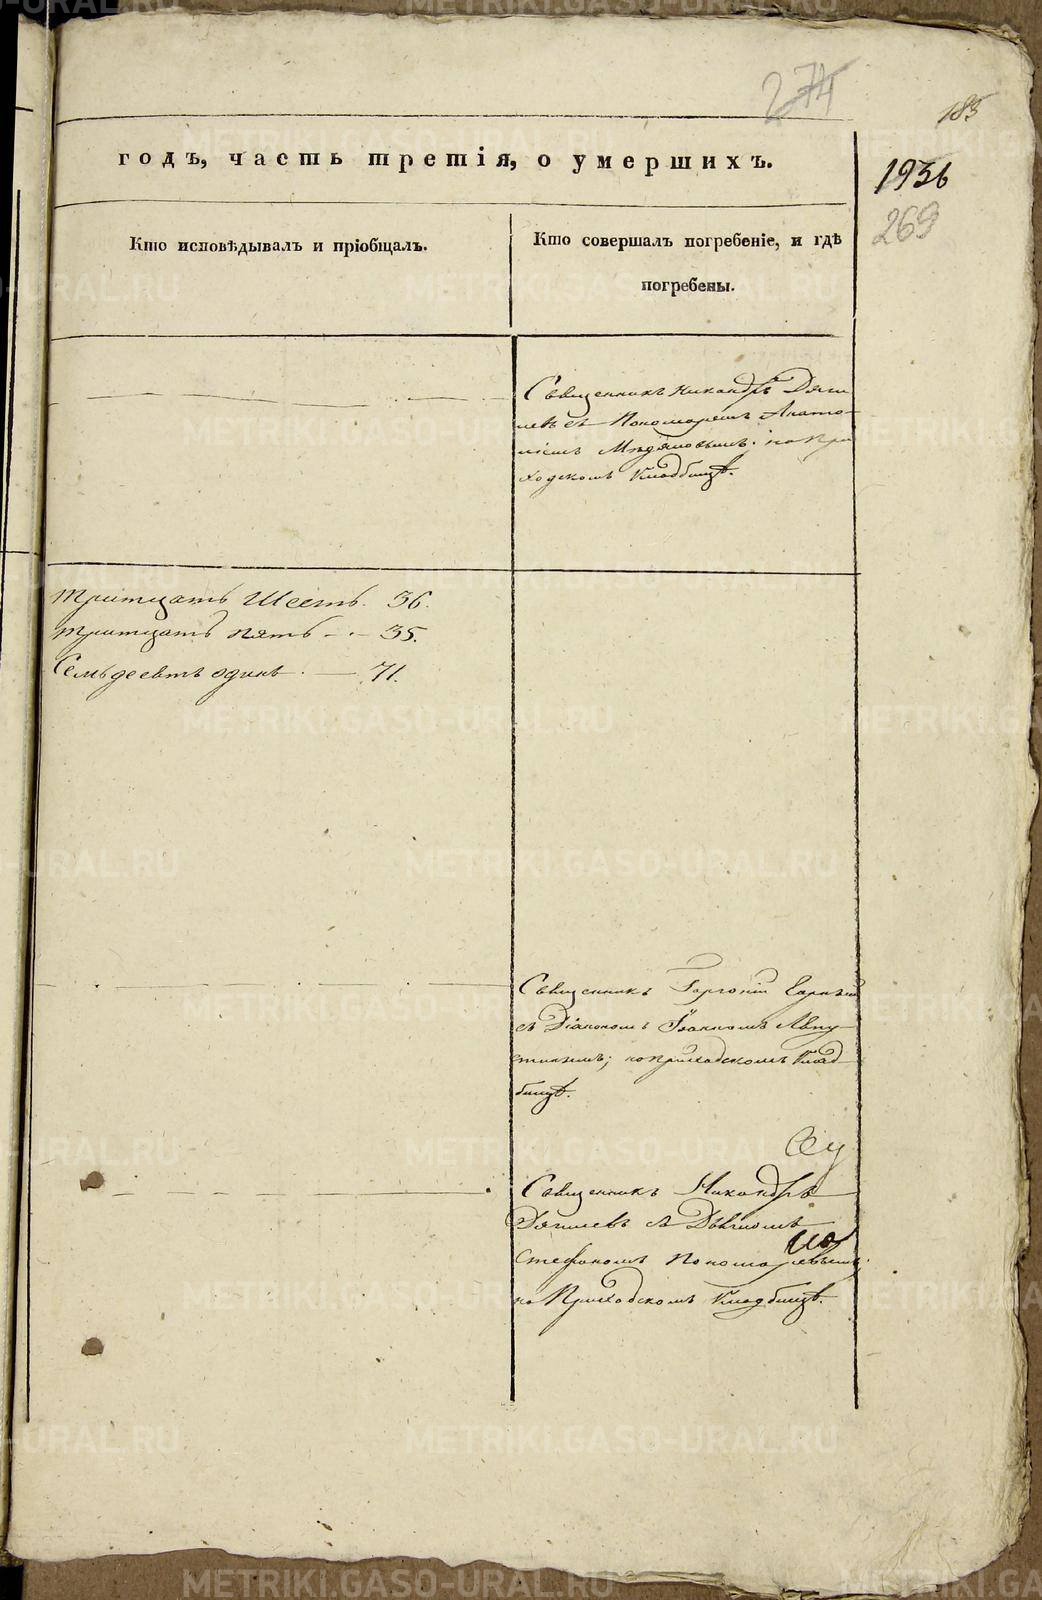 274
183
годъ, часть третія, о умершихъ.
1936
269
Кто исповѣдывалъ и пріобщалъ.
Кто совершалъ погребеніе, и гдѣ
погребены.
Священникъ Никандръ Дяги
левъ съ Пономаремъ Анато-
ліемъ на При
ходскомъ Кладбищѣ.
Тритцать Шесть. 36.
Тритцать пять - . - 35.
Семьдесятъ одинъ . — 71.
Священникъ Горгоній
съ Діакономъ Іоанномъ Авгу-
стинымъ; на приходскомъ Клад
бищѣ.
Священникъ Никандръ
Дягилевъ съ Дьячкомъ
Стефаномъ Пономаревымъ;
на Приходскомъ Кладбищѣ.
METRIKI.GASO-URAL.RU